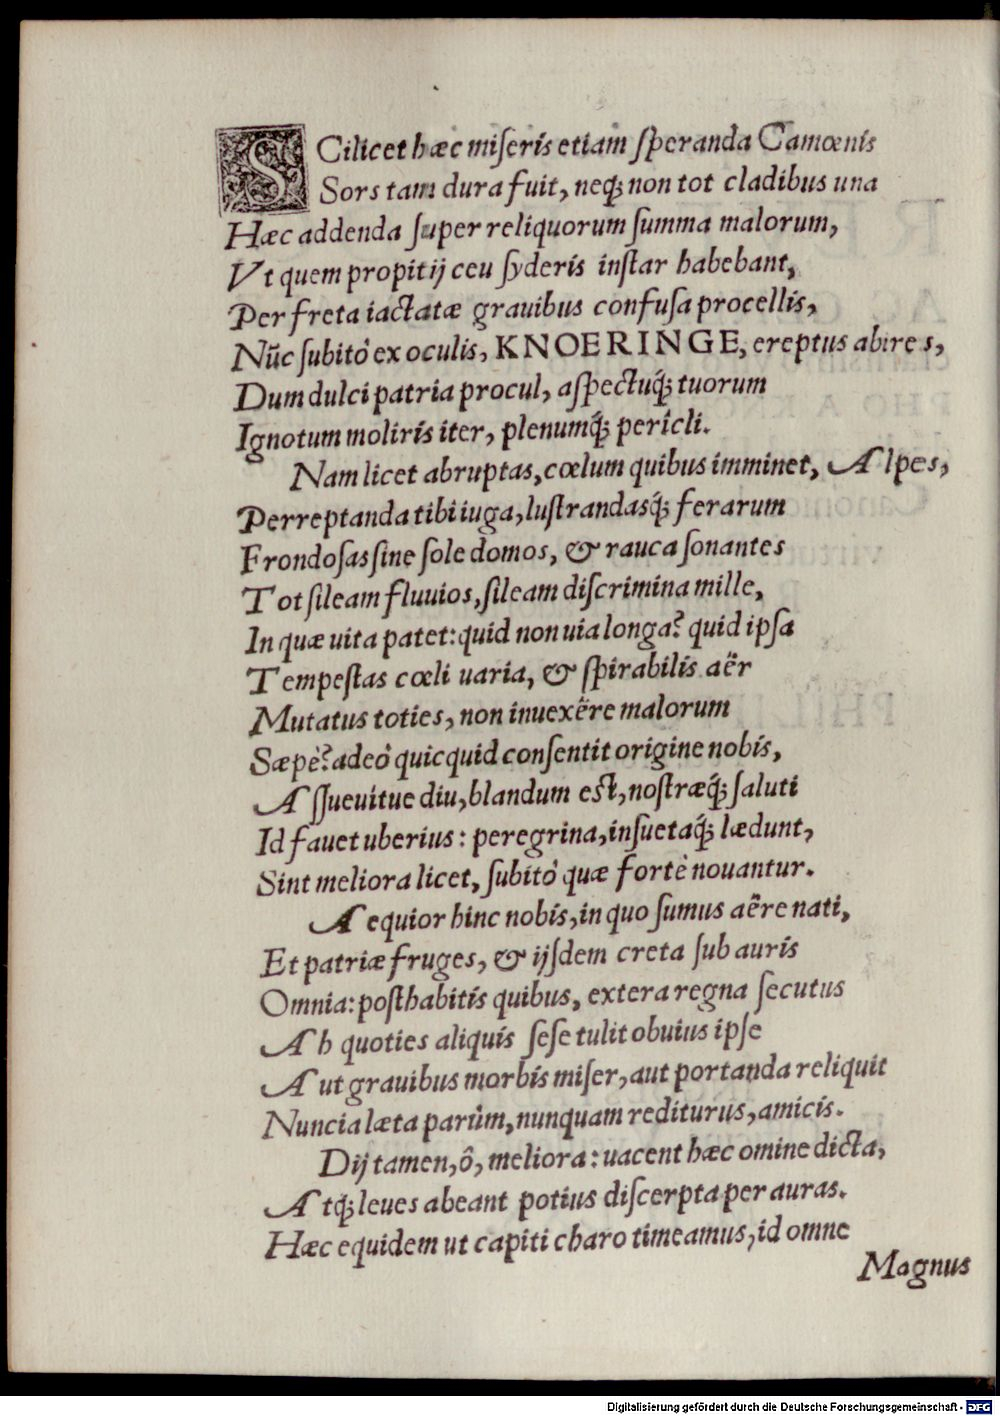 SCilicet hæc miſeris etiam ſperanda Camœnis
Sors tam dura fuit, neq; non tot cladibus una
Hæc addenda ſuper reliquorum ſumma malorum,
Vt quem propitij ceu ſyderis inſtar habebant,
Per freta iactatæ grauibus confuſa procellis,
Nūc ſubitò ex oculis, KNOERINGE, ereptus abires,
Dum dulci patria procul, aſpectuq́; tuorum
Ignotum moliris iter, plenumq́; pericli.
Nam licet abruptas, cœlum quibus imminet, Alpes,
Perreptanda tibi iuga, luſtrandasq́; ferarum
Frondoſas ſine ſole domos, & rauca ſonantes
Tot ſileam fluuios, ſileam diſcrimina mille,
In quæ uita patet: quid non uia longa? quid ipſa
Tempeſtas cœli uaria, & ſpirabilis aër
Mutatus toties, non inuexêre malorum
Sæpè? adeò quicquid conſentit origine nobis,
Aſſueuitue diu, blandum eſt, noſtræq́; ſaluti
Id fauet uberius: peregrina, inſuetaq́; lædunt,
Sint meliora licet, ſubitò quæ fortè nouantur.
Aequior hinc nobis, in quo ſumus aëre nati,
Et patriæ fruges, & ijſdem creta ſub auris
Omnia: poſthabitis quibus, extera regna ſecutus
Ah quoties aliquis ſeſe tulit obuius ipſe
Aut grauibus morbis miſer, aut portanda reliquit
Nuncia læta parùm, nunquam rediturus, amicis.
Dij tamen, ô, meliora: uacent hæc omine dicta,
Atq; leues abeant potius diſcerpta per auras.
Hæc equidem ut capiti charo timeamus, id omne
Magnus
Digitalisierung gefördert durch die Deutsche Forschungsgemeinschaft - DFG